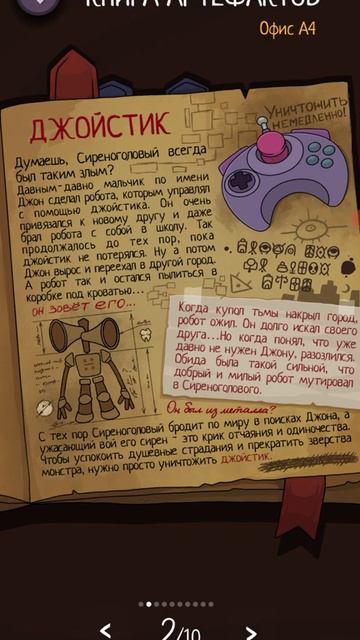 КНИГА АРТЕФАКТОВ
Офис А4
Уничтожить
немедленно!
ДЖОЙСТИК
Думаешь, Сиреноголовый всегда
был таким злым?
Давным-давно мальчик по имени
Джон сделал робота, которым управлял
с помощью джойстика. Он очень
привязался к новому другу и даже
брал робота с собой в школу. Так
продолжалось до тех пор, пока
джойстик не потерялся. Ну а потом
Джон вырос и переехал в другой город.
А робот так и остался пылиться в
коробке под кроватью...
он зовёт его...
Когда купол тьмы накрыл город,
робот ожил. Он долго искал своего
друга...Но когда понял, что уже
давно не нужен Джону, разозлился.
Обида была такой сильной, что
добрый и милый робот мутировал
в Сиреноголового.
Он был из металла?
С тех пор Сиреноголовый бродит по миру в поисках Джона, а
ужасающий вой его сирен - это крик отчаяния и одиночества.
Чтобы успокоить душевные страдания и прекратить зверства
монстра, нужно просто уничтожить джойстик.
< 2/10 >